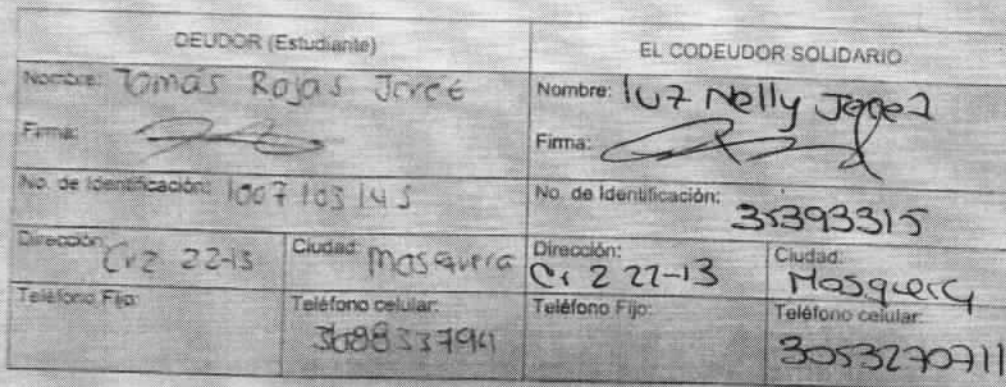 DEUDOR (Estudiante)
EL CODEUDOR SOLIDARIO
Nombre: Tomás Rojas
Nombre: luz Nelly
Firma:
Firma:
No. de Identificación: 1007103145
No. de Identificación: 35393315
Dirección: Cr 2 22-13
Ciudad: Mosquera
Dirección: Cr 2 22-13
Ciudad: Mosquera
Teléfono Fijo:
Teléfono celular:
Teléfono Fijo:
Teléfono celular: 3053270711